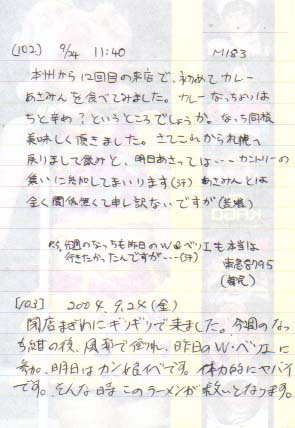 [102] 9/24 11:40 M183
本州から12回目の来店で、初めてカレー
あさみんを食べてみました。カレーなっちよりは
ちと辛め?というところでしょうか。なっち同様
美味しく頂きました。さてこれから札幌へ
戻りまして飲みと、明日あさっては…カントリーの
集いに参加してまいります(汗) あさみんとは
全く関係無くて申し訳ないですが(苦笑)
P.S. 今週のなっちも昨日のW@ベリエも本当は
行きたかったんですが…(汗)
東急8795
[103] 2004.9.24(金)
閉店まぎわにギリギリで来ました。今週のなっ
ち紺の後、風邪で倒れ、昨日のW・ベリエに
参加、明日はカン娘イベです。体力的にヤバイ
です。そんな時このラーメンが救いとなります。